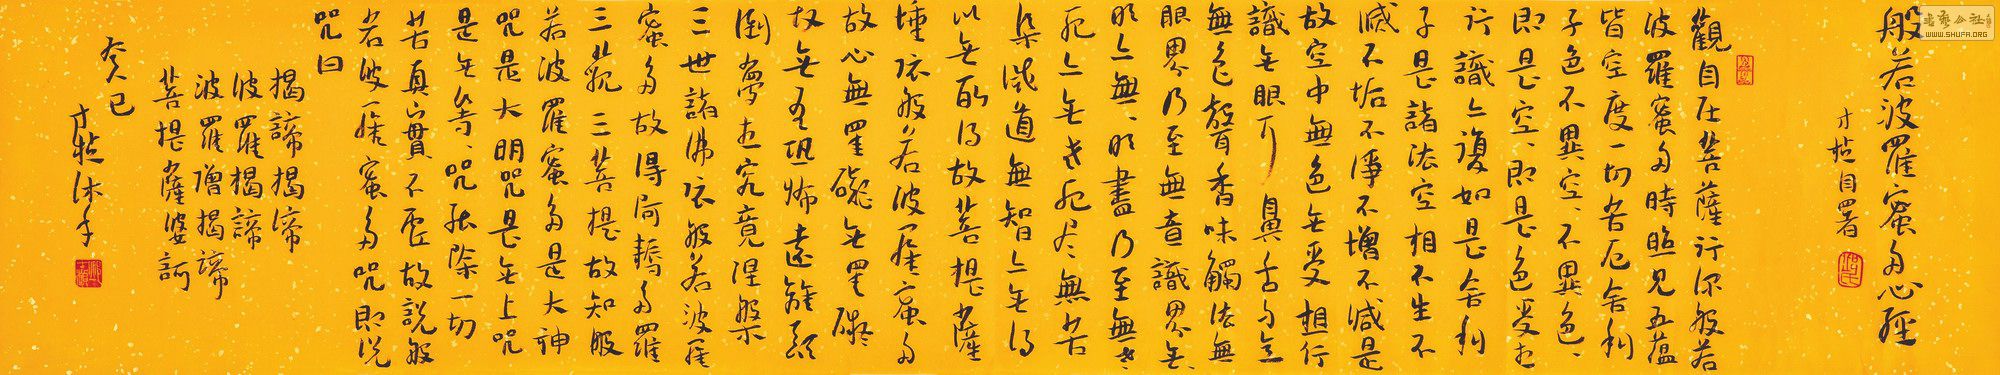 般若波羅蜜多心經
自署
觀自在菩薩行深般若
波羅蜜多時照見五蘊
皆空度一切苦厄舍利
子色不異空、不異色、
即是空、即是色受想
行識亦復如是舍利
子是諸法空相不生不
滅不垢不淨不增不減是
故空中無色无受想行
識无眼耳鼻舌身意
無色聲香味觸法無
眼界乃至無意識界无、
明亦無、明盡乃至無老、
死亦无老死盡無苦
集滅道無智亦无得
以无所得故菩提薩
埵依般若波羅蜜多
故心無罣礙无罣礙
故无有恐怖遠離顛
倒夢想究竟涅槃
三世諸佛依般若波羅
蜜多故得阿耨多羅
三藐三菩提故知般
若波羅蜜多是大神
咒是大明咒是无上咒
是无等、咒能除一切
苦真實不虛故說般
若波羅蜜多咒即說
咒曰
揭諦揭諦
波羅揭諦
波羅僧揭諦
菩提薩婆訶
癸巳
沐手
WWW.SHUFA.ORG